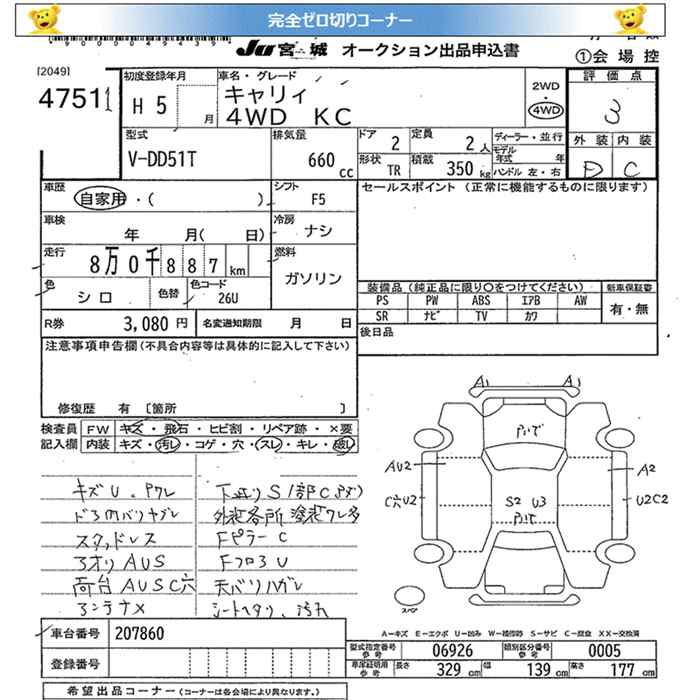 完全ゼロ切りコーナー
JU 宮城 オークション出品申込書
①会場控
[2049]
4751
初度登録年月
H 5 月
車名・グレード
キャリィ
4WD KC
2WD
・
4WD
評価点
3
外装 内装
D C
型式
V-DD51T
排気量
660 cc
ドア
2
定員
2 人
形状
TR
積載
350 kg
ディーラー・並行
モデル
年式 年
ハンドル 左・右
車歴
自家用・( )
シフト
F5
セールスポイント (正常に機能するものに限ります)
車検
年 月( 日)
冷房
ナシ
走行
8万0千887 km
燃料
ガソリン
色
シロ
色替
色コード
26U
装備品 (純正品に限り〇をつけてください)
新車保証書
PS PW ABS エアB AW
SR ナビ TV カワ
有・無
R券 3,080 円
名変通知期限 月 日
後日品
注意事項申告欄(不具合内容等は具体的に記入して下さい)
修復歴 有 〔箇所 〕
検査員
記入欄
FW キズ・飛石・ヒビ割・リペア跡・×要
内装 キズ・汚れ・コゲ・穴・スレ・キレ・破レ
キズU.ワレ
スタッドレス
Fピラー C
アオリ AUS
Fフロア U
荷台 AUSC穴
シートヘタリ、汚れ
A1 A1
AU2
A2
C穴U2
S2 U3
U2C2
スペア
A−キズ E−エクボ U−凹み W−補修跡 S−サビ C−腐食 XX−交換済
車台番号 207860
登録番号
型式指定番号
参考
06926
類別区分番号
参考
0005
車庫証明用
参考
長さ 329 cm 幅 139 cm 高さ 177 cm
希望出品コーナー (コーナーは各会場により異なります。)